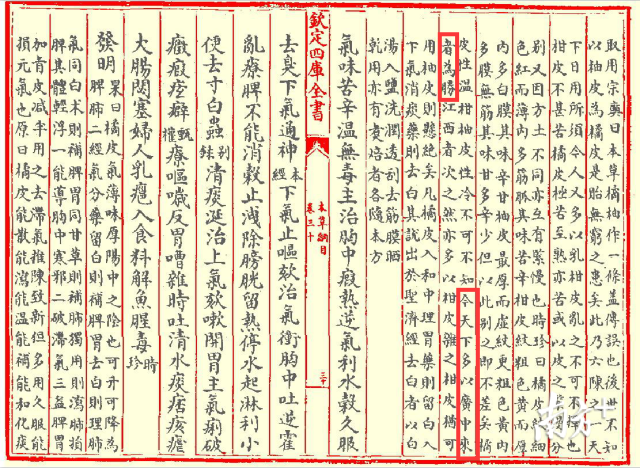 取用宗奭曰本草橘柚作一條蓋傳誤也後世不知
以柚皮為橘皮是貽無窮之患矣此乃六陳之一天
下日用所須今人又多以乳柑皮亂之不可不擇也
柑皮不甚苦橘皮極苦至熟亦苦或以皮之緊慢分
別又因方土不同亦互有緊慢也時珍曰橘皮紋細
色紅而薄內多筋脈其味苦辛柑皮紋粗色黃而厚
內多白膜其味辛甘柚皮最厚而虛紋更粗色黃內
多膜無筋其味甘多辛少但以此別之即不差矣橘
皮性溫柑柚皮性冷不可不知今天下多以廣中來
者為勝江西者次之然亦多以柑皮雜之柑皮猶可
用柚皮則懸絕矣凡橘皮入和中理胃藥則留白入
下氣消痰藥則去白其說出於聖濟經去白者以白
湯入鹽洗潤透刮去筋膜曬
乾用亦有煮焙者各隨本方
氣味苦辛溫無毒主治胸中瘕熱逆氣利水穀久服
欽定四庫全書
本草綱目
卷三十
去臭下氣通神本經下氣止嘔欬治氣衝胸中吐逆霍
亂療脾不能消穀止洩除膀胱留熱停水起淋利小
便去寸白蟲別錄清痰涎治上氣欬嗽開胃主氣痢破
癥瘕痃癖甄權療嘔噦反胃嘈雜時吐清水痰痞痎瘧
大腸閟塞婦人乳癰入食料解魚腥毒時珍
發明杲曰橘皮氣薄味厚陽中之陰也可升可降為
脾肺二經氣分藥留白則補脾胃去白則理肺
氣同白朮則補脾胃同甘草則補肺獨用則瀉肺損
脾其體輕浮一能導胸中寒邪二破滯氣三益脾胃
加青皮減半用之去滯氣推陳致新但多用久服能
損元氣也原曰橘皮能散能瀉能溫能補能和化痰
南方+